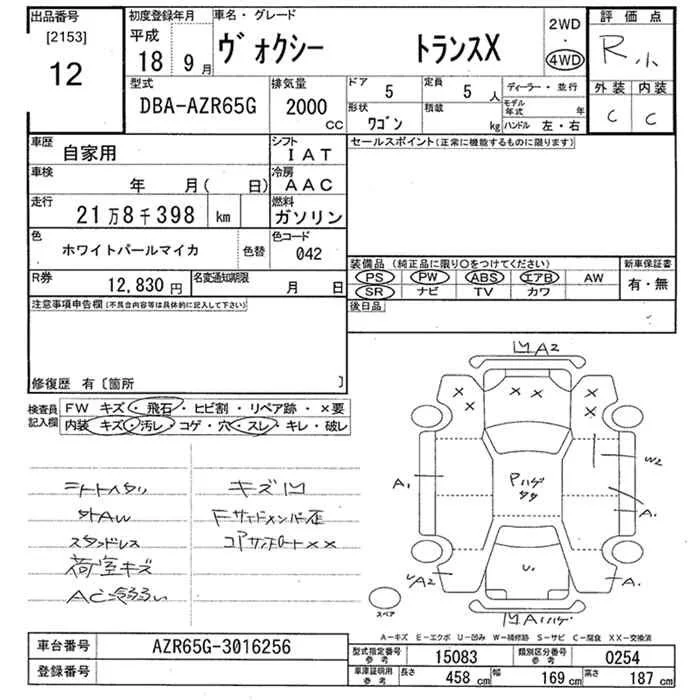 出品番号
[2153]
12
初度登録年月
平成
18 9月
車名・グレード
ヴォクシー トランスX
2WD
・
4WD
評価点
R小
外装 内装
C C
型式
DBA-AZR65G
排気量
2000
CC
ドア
5
定員
5人
形状
ワゴン
積載
kg
ディーラー・並行
モデル年式 年
ハンドル 左・右
車歴
自家用
シフト
IAT
車検
年 月( 日)
冷房
AAC
走行
21万8千398 km
燃料
ガソリン
色
ホワイトパールマイカ
色替
色コード
042
R券
12,830円
名変通知期限
月 日
セールスポイント(正常に機能するものに限ります)
装備品 (純正品に限り○をつけてください)
PS PW ABS エアB AW
SR ナビ TV カワ
新車保証書
有・無
後日品
注意事項申告欄(不具合内容等は具体的に記入して下さい)
修復歴 有〔箇所 〕
検査員記入欄
FW キズ・飛石・ヒビ割・リペア跡・×要
内装 キズ・汚レ・コゲ・穴・スレ・キレ・破レ
シートヘタリ
外AW
スタッドレス
荷室キズ
キズ凹
Fサイドメンバー歪
コアサポート××
凹A2
× ×
× ×
× ×
A1
W2
Pハゲ
A.
UA2
U.
A.
凹Aハゲ
スペア
A-キズ E-エクボ U-凹み W-補修跡 S-サビ C-腐食 XX-交換済
車台番号
AZR65G-3016256
登録番号
型式指定番号
参考
15083
類別区分番号
参考
0254
車庫証明用
参考
長さ
458 cm
幅
169 cm
高さ
187 cm